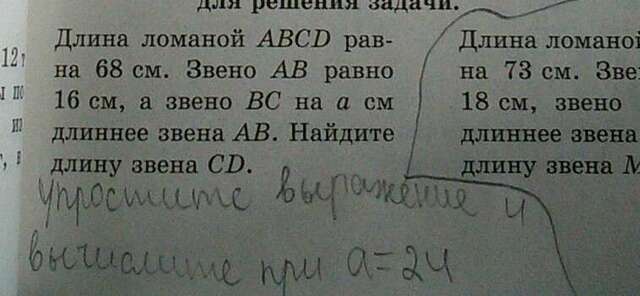 для решения задачи.
Длина ломаной ABCD рав-
на 68 см. Звено AB равно
16 см, а звено BC на a см
длиннее звена AB. Найдите
длину звена CD.
Длина ломаной
на 73 см. Зве
18 см, звено
длиннее звена
длину звена M
12
упростите выражение и
вычислите при a=24